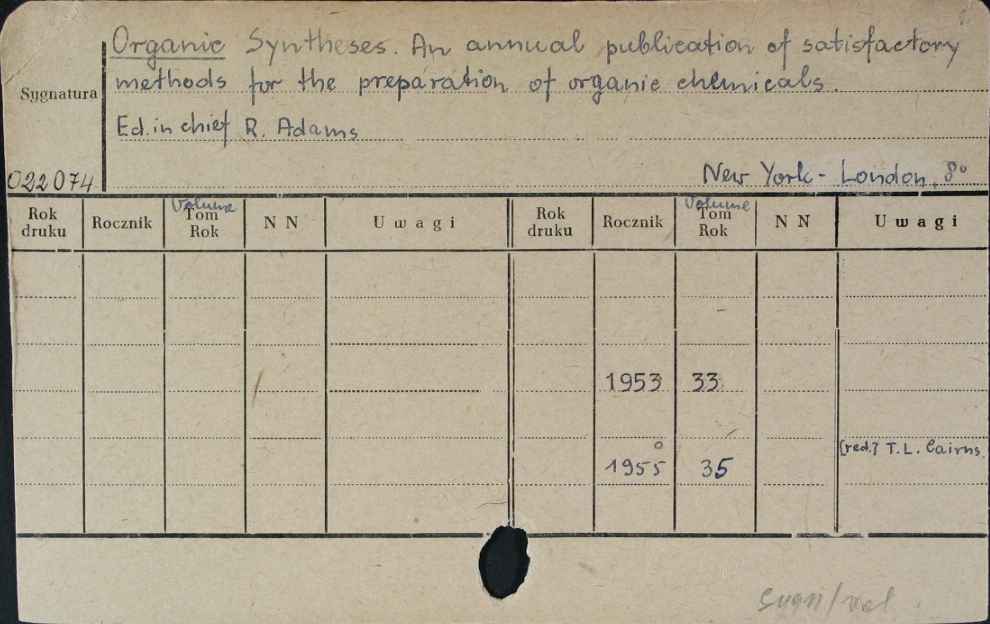 Organic Syntheses. An annual publication of satisfactory
methods for the preparation of organic chemicals.
Sygnatura
Ed. in chief R. Adams
022074
New York - London, 8°
Rok druku Rocznik Volume Tom Rok NN Uwagi Rok druku Rocznik Volume Tom Rok NN Uwagi
1953 33
1955 35 [red.] T. L. Cairns